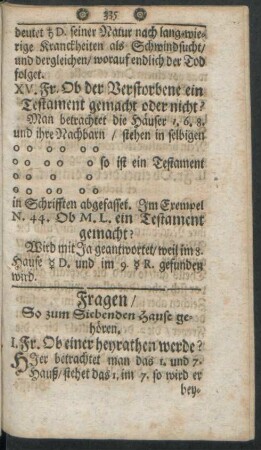 335
deutet ♄ D. seiner Natur nach lang-wie-
rige Kranckheiten als Schwindsucht/
und dergleichen/ worauf endlich der Tod
folget.
XV. Fr. Ob der Verstorbene ein
Testament gemacht oder nicht?
Man betrachtet die Häuser 1. 6. 8.
und ihre Nachbarn / stehen in selbigen
so ist ein Testament
in Schrifften abgefasset. Im Exempel
N. 44. Ob M. L. ein Testament
gemacht?
Wird mit Ja geantwortet/ weil im 8.
Hause ☿ D. und im 9. ☿ R. gefunden
wird.
Fragen/
So zum Siebenden Hause ge-
hören.
I. Fr. Ob einer heyrathen werde?
Hier betrachtet man das 1. und 7.
Hauß/ stehet das 1. im 7. so wird er
hey-